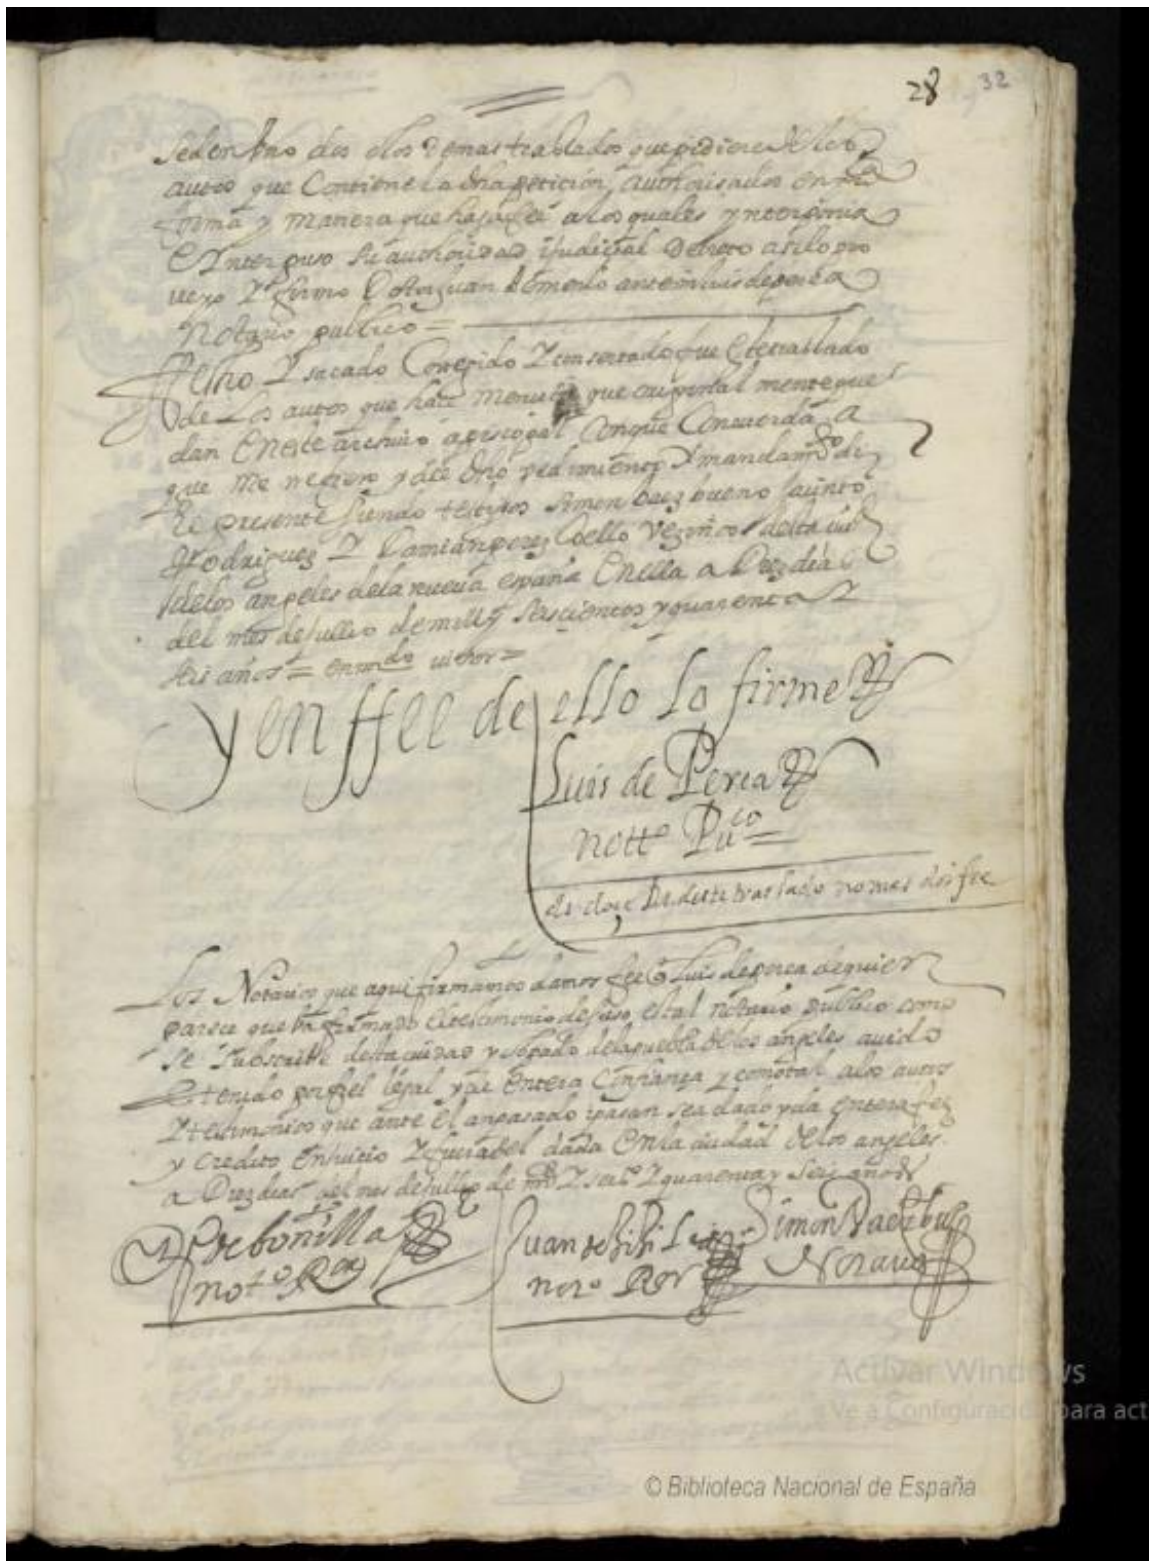 28 32
se den uno dos o los demas traslados que pidiere de los
autos que Contiene la dha peticion, authorisados en
forma y manera que hagā fee a los quales ynterponia
E Interpuso su authoridad judicial Decreto assi lo pro
ueyo Y firmo Juan de Merlo ante mi luis de perea
Notario publico =
ffecho Y sacado Corregido Y consertado fue este traslado
de Los autos que hace mencion que original mente que
dan En este archiuo episcopal Conque Concuerda a
que me refiero y de dho pedimiento Y mandamto di
el presente siendo testigos Simon baez bueno Jacinto
Rodriguez Y Damian perez Coello Vezinos desta ciud
de los angeles de la nueua españa En ella a Diez dias
del mes de Jullio de mill y seiscientos y quarenta Y
seis años = enmdo =
y en ffee de ello lo firme
Luis de Perea
nott.o Pu.co
de este traslado no mas doi fee
Los Notarios que aqui firmamos damos fee q Luis de perea de quien
parece que ba firmado el testimonio de suso es tal notario publico como
se subscribe desta ciudad y obpado de la puebla de los angeles auido
E tenido por fiel legal y de entera Confiança y como tal a los autos
Y testimonios que ante el an pasado y pasan se a dado y da entera fee
y credito En juicio Y fuera del dada En la ciudad de los angeles
a Diez dias del mes de Jullio de mill Y seisos Y quarenta y seis años
de bonilla
not.o R.or
Juan de
noto Ror
Simon Baez bueno
Notario
Activar Windows
Ve a Configuración para act
© Biblioteca Nacional de España